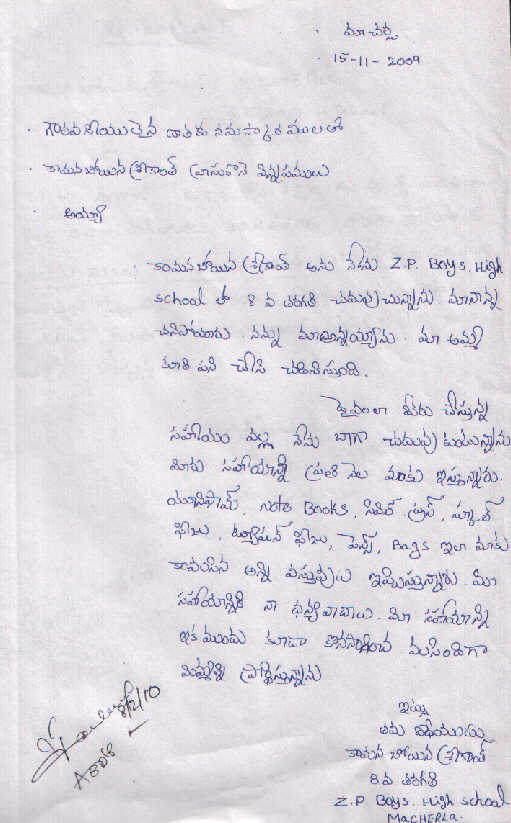 మాచర్ల
15-11-2009
గౌరవనీయులైన దాతకు నమస్కారములతో
కామనబోయిన శ్రీకాంత్ వ్రాసుకొనె విన్నపములు
అయ్యా
కామనబోయిన శ్రీకాంత్ అను నేను Z.P. Boys. High
school లో 8 వ తరగతి చదువుచున్నాను. మానాన్న
చనిపోయాడు. నన్ను మా అమ్మ
కూలి పని చేసి చదివిస్తుంది.
దైవంలా మీరు చేస్తున్న
సహాయం వల్ల నేను బాగా చదువుకుంటున్నాను
మీరు సహాయాన్ని ప్రతి నెల మాకు ఇస్తున్నారు.
యూనిఫామ్, Note Books, స్కూల్
ఫీజు, ట్యూషన్ ఫీజు, పెన్స్, Bags ఇలా మాకు
కావలసిన అన్ని వస్తువులు ఇప్పిస్తున్నారు. మీ
సహాయానికి నా ధన్యవాదాలు. మీ సహాయాన్ని
ఇక ముందు కూడా కొనసాగించ వలసిందిగా
మిమ్మల్ని ప్రార్థిస్తున్నాను
ఇట్లు
తమ విధేయుడు
కామన బోయిన శ్రీకాంత్
8 వ తరగతి
Z.P Boys. High school
MACHERLA.